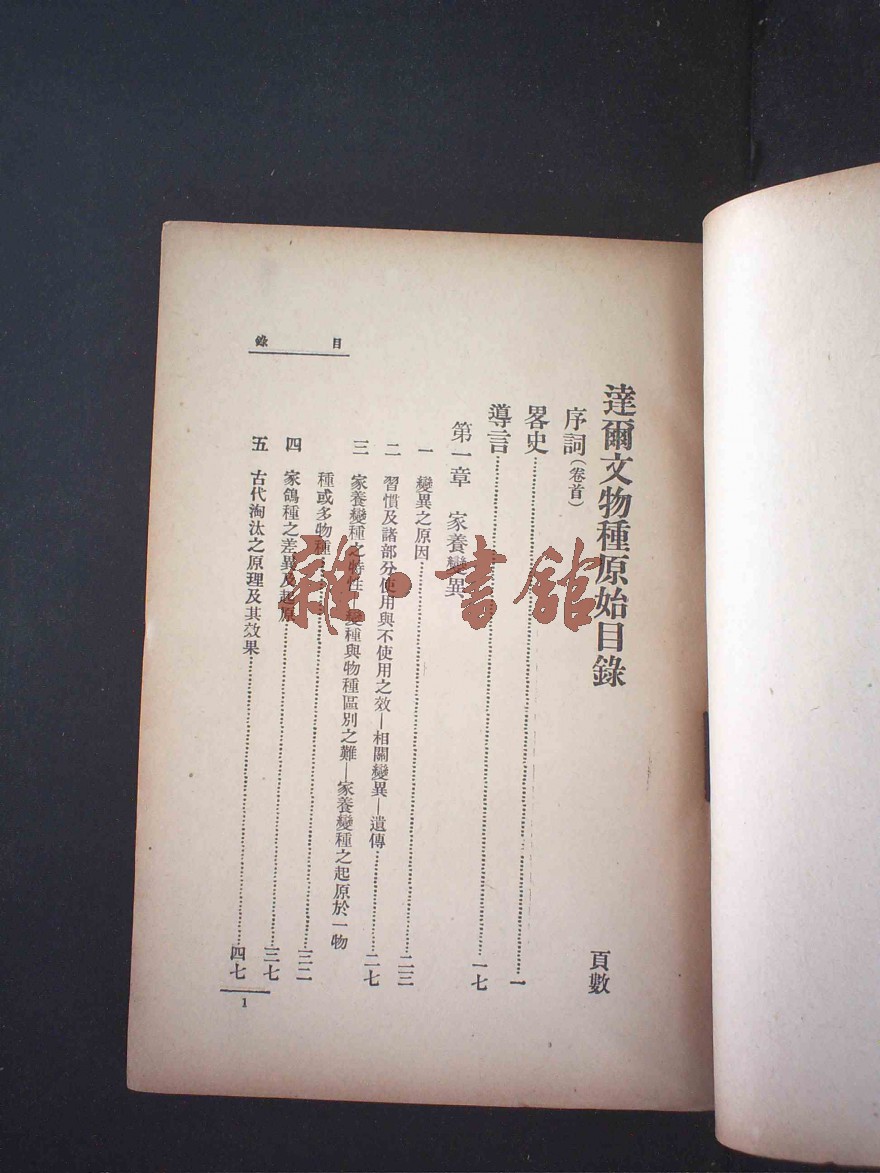 達爾文物種原始目錄
頁數
序詞(卷首)
畧史……一
導言……一七
第一章 家養變異
一 變異之原因……二三
二 習慣及諸部分使用與不使用之效—相關變異—遺傳……二七
三 家養變種之特性—變種與物種區別之難—家養變種之起原於一物
種或多物種……三二
四 家鴿種之差異及起原……三七
五 古代淘汰之原理及其效果……四七
目錄
1
雜·書館